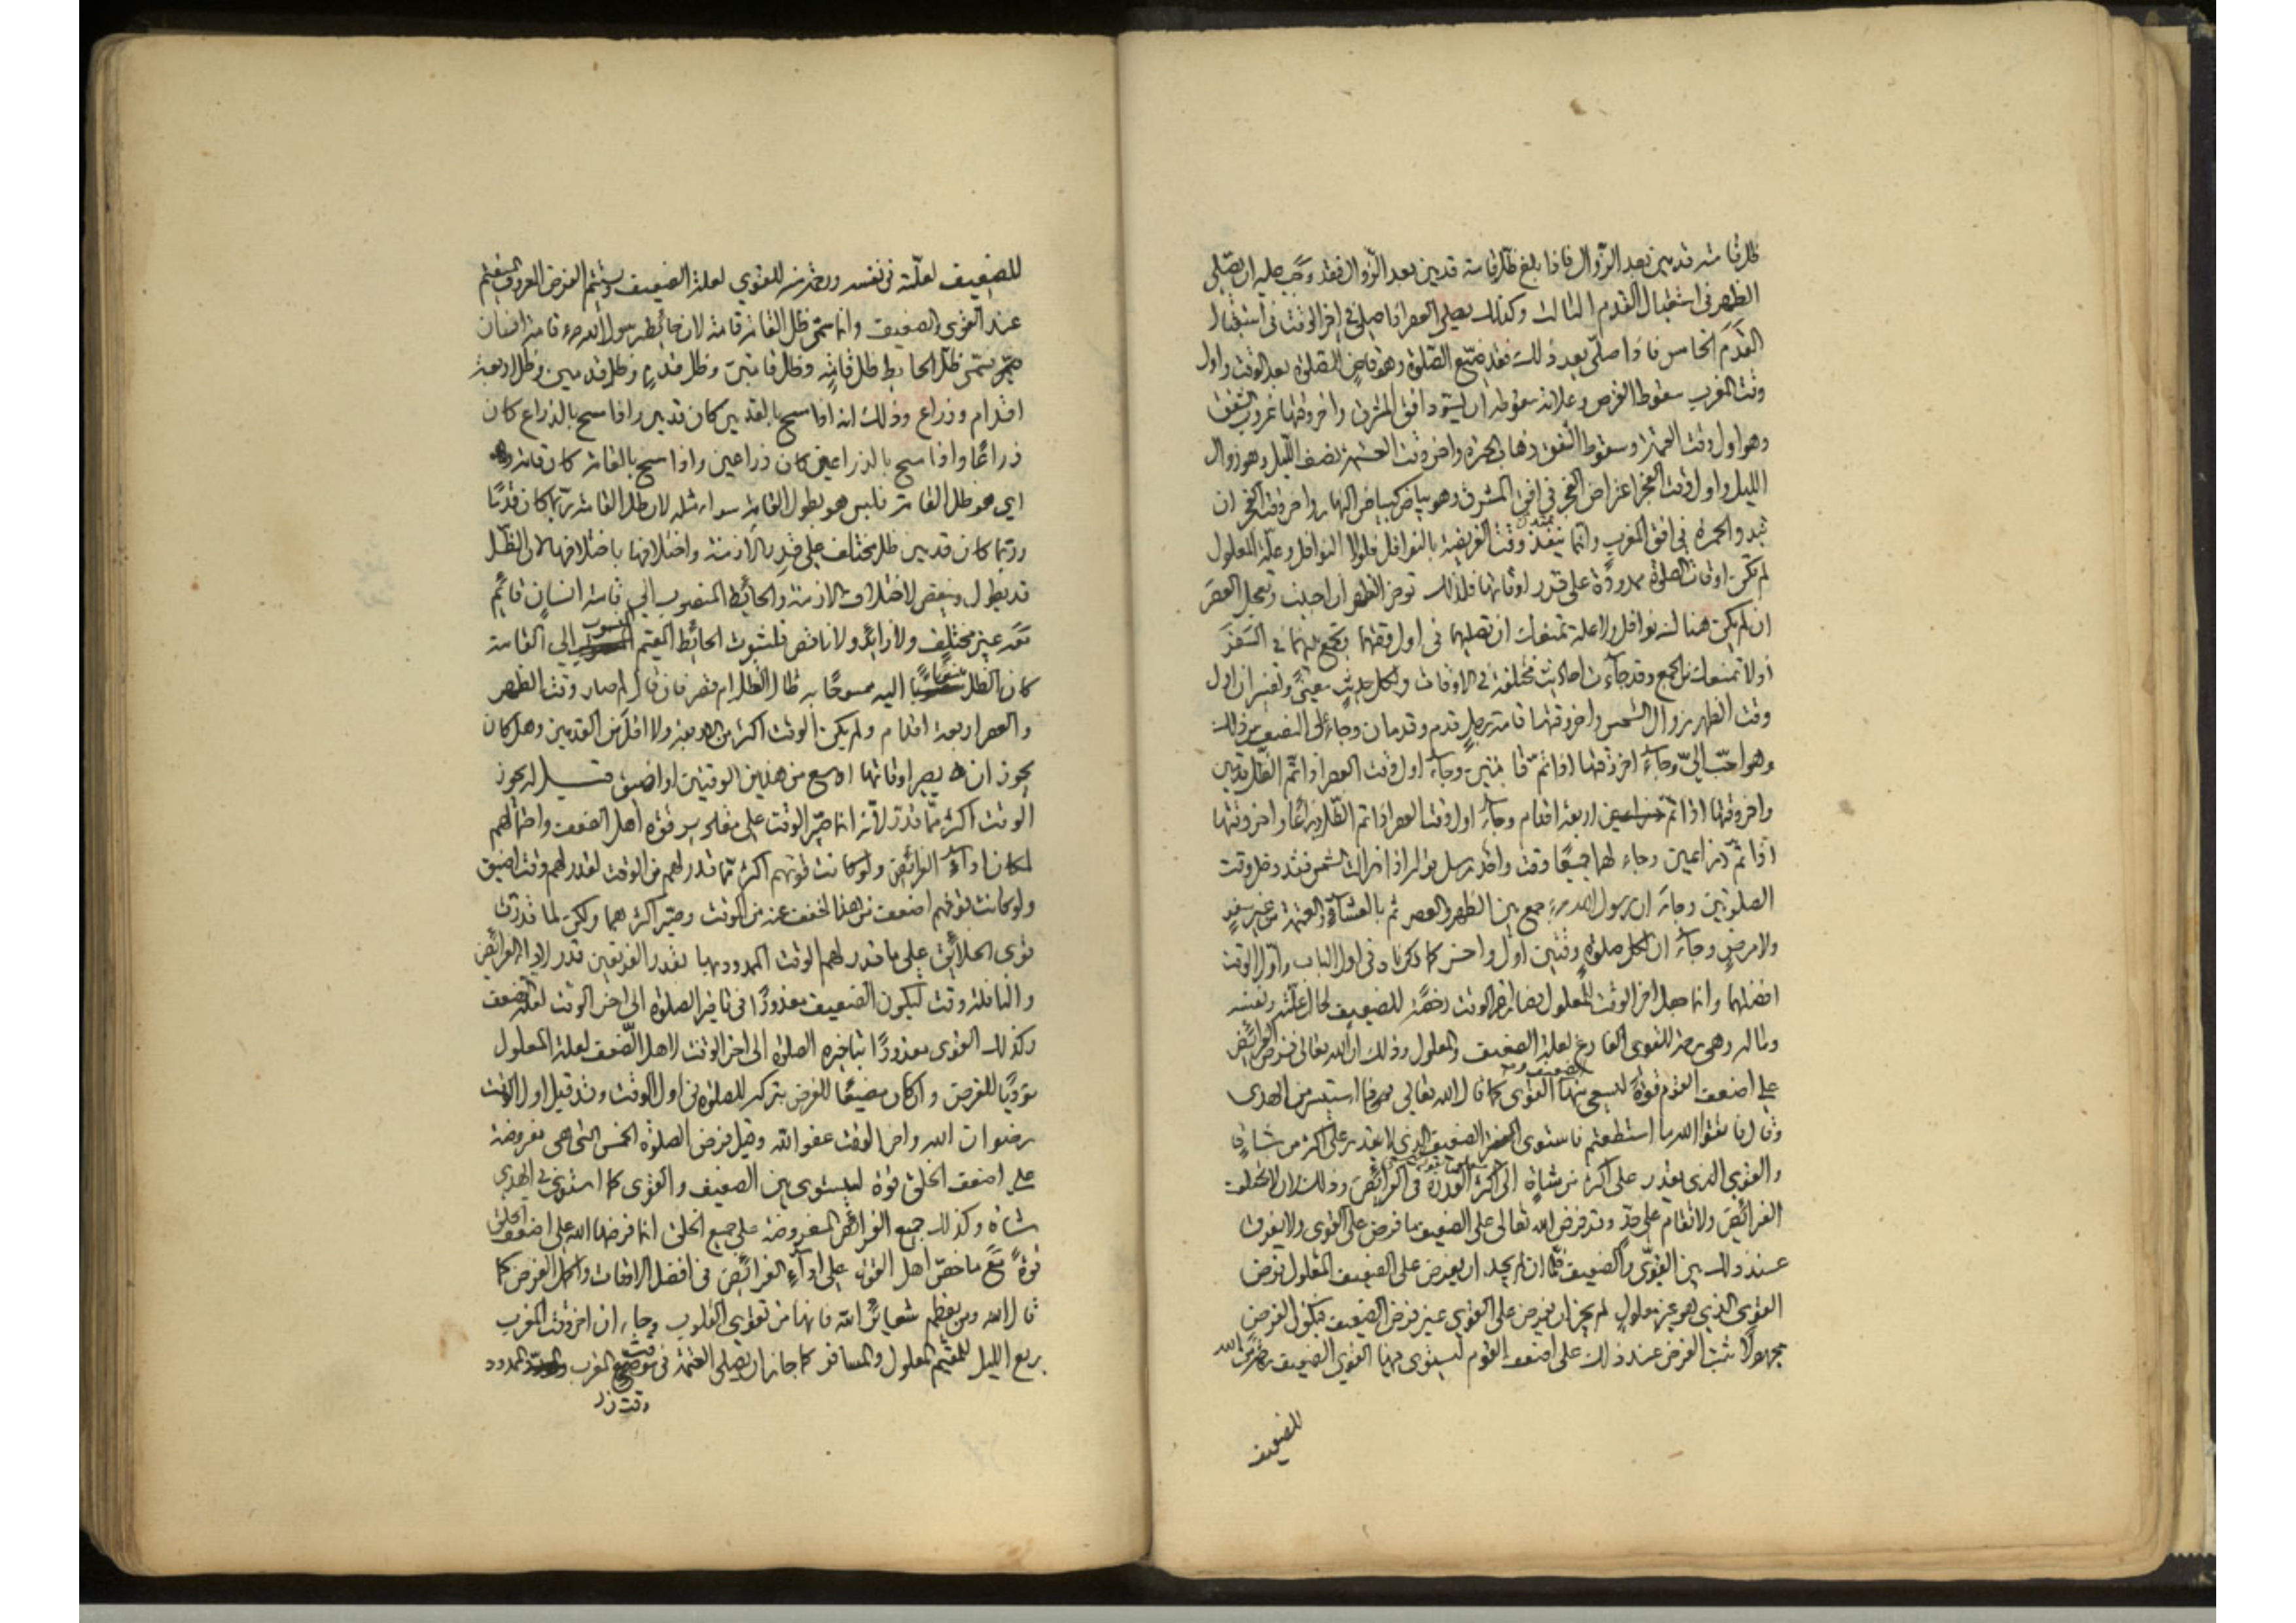 ظل قامته قدمين بعد الزوال فاذا بلغ ظل قامته قدمين بعد الزوال فقد وجب عليه ان يصلى
الظهر فى استقبال القدم الثالث وكذلك يصلى العصر اذا صلى فى اخر الوقت فى استقبال
القدم الخامس فاذا صلى بعد ذلك فقد ضيع الصلوة وهو قاض للصلوة بعد الوقت واول
وقت المغرب سقوط القرص وعلامة سقوطه ان يسود افق المشرق واخر وقتها غروب الشفق
وهو اول وقت العتمة وسقوط الشفق ذهاب الحمرة واخر وقت العتمة نصف الليل وهو زوال
الليل واول وقت الفجر اعتراض الفجر فى افق المشرق وهو بياض كبياض النهار واخر وقت الفجر ان
تبدو الحمرة فى افق المغرب وانما يمتد وقت الفريضة بالنوافل فلولا النوافل وعلة المعلول
لم تكن اوقات الصلوة ممدودة على قدر اوقاتها فلذلك توخر الظهر ان احببت وتعجل العصر
ان لم يكن هناك نوافل ولا علة تمنعك ان تصليهما فى اول وقتهما وتجمع بينهما فى السفر
اذ لا تمنعك من الجمع وقد جاءت احاديث مختلفة فى الاوقات ولكل حديث معنى وتفسير ان اول
وقت الظهر زوال الشمس واخر وقتها قامة رجل قدم وقدمان وجاء على النصف من ذلك
وهو احب الى وجاء اخر وقتها اذا تم قامتين وجاء اول وقت العصر اذا تم الظل قدمين
واخر وقتها اذا تم اربعة اقدام وجاء اول وقت العصر اذا تم الظل ذراعا واخر وقتها
اذا تم ذراعين وجاء لهما جميعا وقت واحد مرسل قوله اذا زالت الشمس فقد دخل وقت
الصلوتين وجاء ان رسول الله ص جمع بين الظهر والعصر ثم بالعشاء والعتمة من غير سفر
ولا مرض وجاء ان لكل صلوة وقتين اول واخر كما ذكرناه فى اول الباب واول الوقت
افضلهما وانما جعل اخر الوقت للمعلول فصار اخر الوقت رخصة للضعيف لحال علته ونفسه
وماله وهى رحمة للقوى الفارغ لعلة الضعيف والمعلول وذلك ان الله تعالى فرض الفرائض
على اضعف القوم قوة ليسعى فيها الضعيف والقوى كما قال الله تعالى فما استيسر من الهدى
وقال فاتقوا الله ما استطعتم فاستوى الضعيف الذى لا يقدر على اكثر من شاة
والقوى الذى يقدر على اكثر من شاة الى اكثر القدرة فى الفرائض وذلك لان لا تختلف
الفرائض ولا تقام على حد وقد فرض الله تعالى على الضعيف ما فرض على القوى ولا يفرق
عند ذلك بين القوى والضعيف فلما ان لم يجز ان يفرض على الضعيف المعلول فرض
القوى الذى هو غير معلول لم يجز ان يفرض على القوى غير فرض الضعيف فيكون الفرض
مجهولا ثبت الفرض عند ذلك على اضعف القوم ليستوى فيها القوى الضعيف رحمة من الله
للضعيف
للضعيف لعلته فى نفسه ورحمة منه للقوى لعلة الضعيف ويستتم الفرض المعروف المستقيم
عند القوى والضعيف وانما سمى ظل القامة قامة لان حائط رسول الله ص قامة انسان
فسمى ظل الحايط ظل قامة وظل قامتين وظل قدم وظل قدمين وظل اربعة
اقدام وذراع وذلك انه اذا مسح بالقدمين كان قدمين واذا مسح بالذراع كان
ذراعا واذا مسح بالذراعين كان ذراعين واذا مسح بالقامة كان قامة
اى هو ظل القامة فليس هو بطول القامة سواء مثله لان ظل القامة ربما كان قدما
وربما كان قدمين ظل مختلف على قدر الازمنة واختلافها باختلافها لان الظل
قد يطول وينقص لاختلاف الازمنة والحائط المنصوب الى قامة انسان قائم
معه غير مختلف ولا زائد ولا ناقص فلثبوت الحائط المقيم المنسوب الى القامة
كان الظل منسوبا اليه ممسوحا به طال الظل ام قصر فان قال لم صار وقت الظهر
والعصر اربعة اقدام ولم يكن الوقت اكثر من الاربعة ولا اقل من القدمين وهل كان
يجوز ان يصير اوقاتها اوسع من هذين الوقتين او اضيق قيل له يجوز
الوقت اكثر مما قدر لانه انما صير الوقت على مقادير قوة اهل الضعف واحتمالهم
لمكان اداء الفرائض ولو كانت قوتهم اكثر مما قدر لهم من الوقت لقدر لهم وقت اضيق
ولو كانت قوتهم اضعف من هذا لخفف عنهم من الوقت وصير اكثرهما ولكن لما قدرت
قوى الخلائق على ما قدر لهم الوقت الممدود بها بقدر الفريقين قدر لاداء الفرائض
والنافلة وقت ليكون الضعيف معذورا فى تاخير الصلوة الى اخر الوقت لعلة ضعف
وكذلك القوى معذورا بتاخيره الصلوة الى اخر الوقت لاهل الضعف لعلة المعلول
مؤديا للفرض وان كان مضيعا للفرض بتركه للصلوة فى اول الوقت وقد قيل اول الوقت
رضوان الله واخر الوقت عفو الله وقيل فرض الصلوة الخمس التى هى مفروضة
على اضعف الخلق قوة ليستوى بين الضعيف والقوى كما استوى فى الهدى
شاة وكذلك جميع الفرائض المفروضة على جميع الخلق انما فرضها الله على اضعف الخلق
قوة مع ما خص اهل القوة على اداء الفرائض فى افضل الاوقات واكمل الفرض كما
قال الله ومن يعظم شعائر الله فانها من تقوى القلوب وجاء ان اخر وقت المغرب
ربع الليل للمقيم المعلول والمسافر كما جاز ان يصلى العتمة فى وقت المغرب الممدود